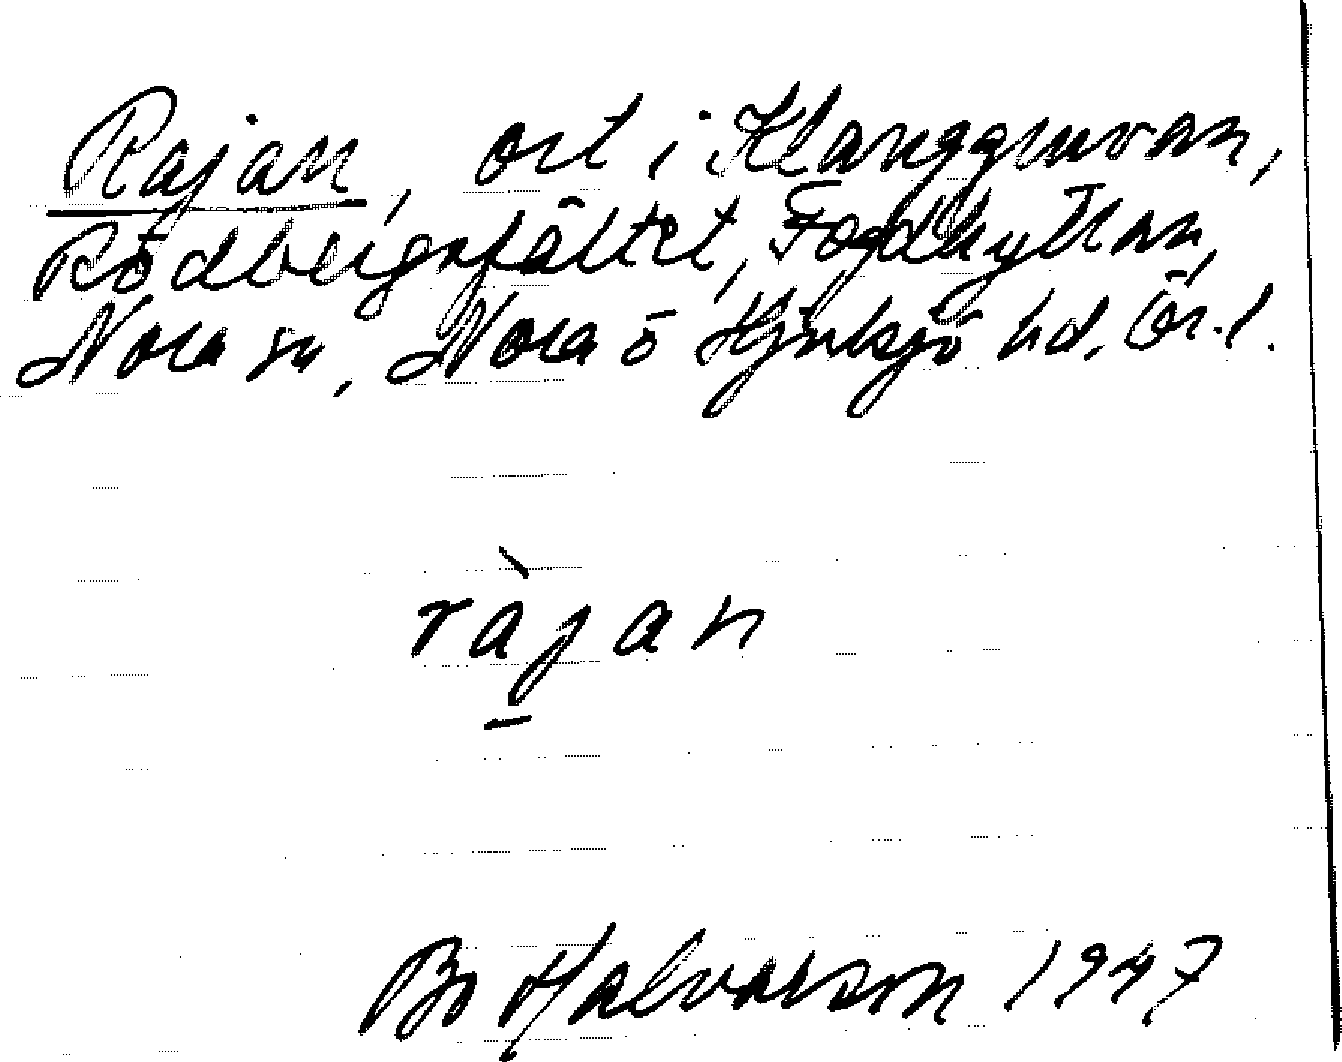 Rajan, ort i Klanggruvan,
Rödbergsfältet, Fogdhyttan,
Nora sn, Nora o Hjulsjö hd, Ör.l.
ràjan
Bo Halvarson 1947